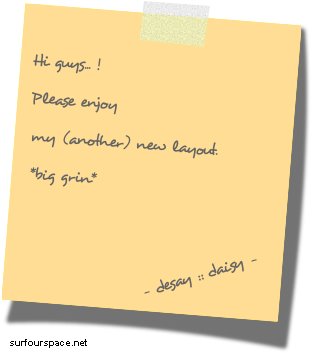 Hi guys... !
Please enjoy
my (another) new layout.
*big grin*
- desay :: daisy -
surfourspace.net